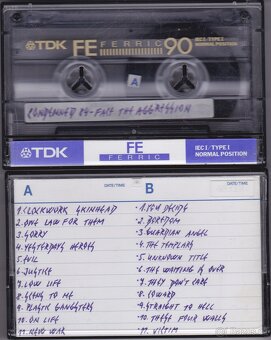 TDK FE FERRIC 90 IEC I / TYPE I
NORMAL POSITION
A
CONDEMNED 84 - FACE THE AGGRESSION
TDK FE IEC I / TYPE I
FERRIC NORMAL POSITION
A DATE/TIME B DATE/TIME
1. CLOCKWORK SKINHEAD
2. ONE LAW FOR THEM
3. SORRY
4. YESTERDAYS HEROES
5. EVIL
6. JUSTICE
7. LOW LIFE
8. LISTEN TO ME
9. PLASTIC GANGSTERS
10. ON LIFE
11. NEW WAR
1. YOU DECIDE
2. BOREDOM
3. GUARDIAN ANGEL
4. THE TEMPLARS
5. UNKNOWN TITLE
6. THE WAITING IS OVER
7. THEY DON'T CARE
8. COWARD
9. STRAIGHT TO HELL
10. THESE FOUR WALLS
11. VICTIM